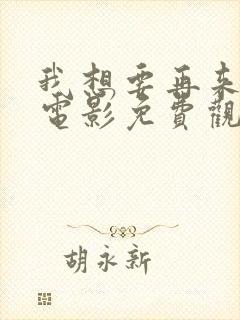 我想要再来
电影免費觀
胡永新